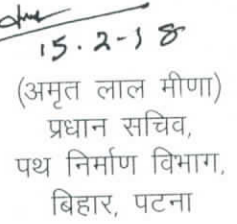 15.2-18
(अमृत लाल मीणा)
प्रधान सचिव,
पथ निर्माण विभाग,
बिहार, पटना